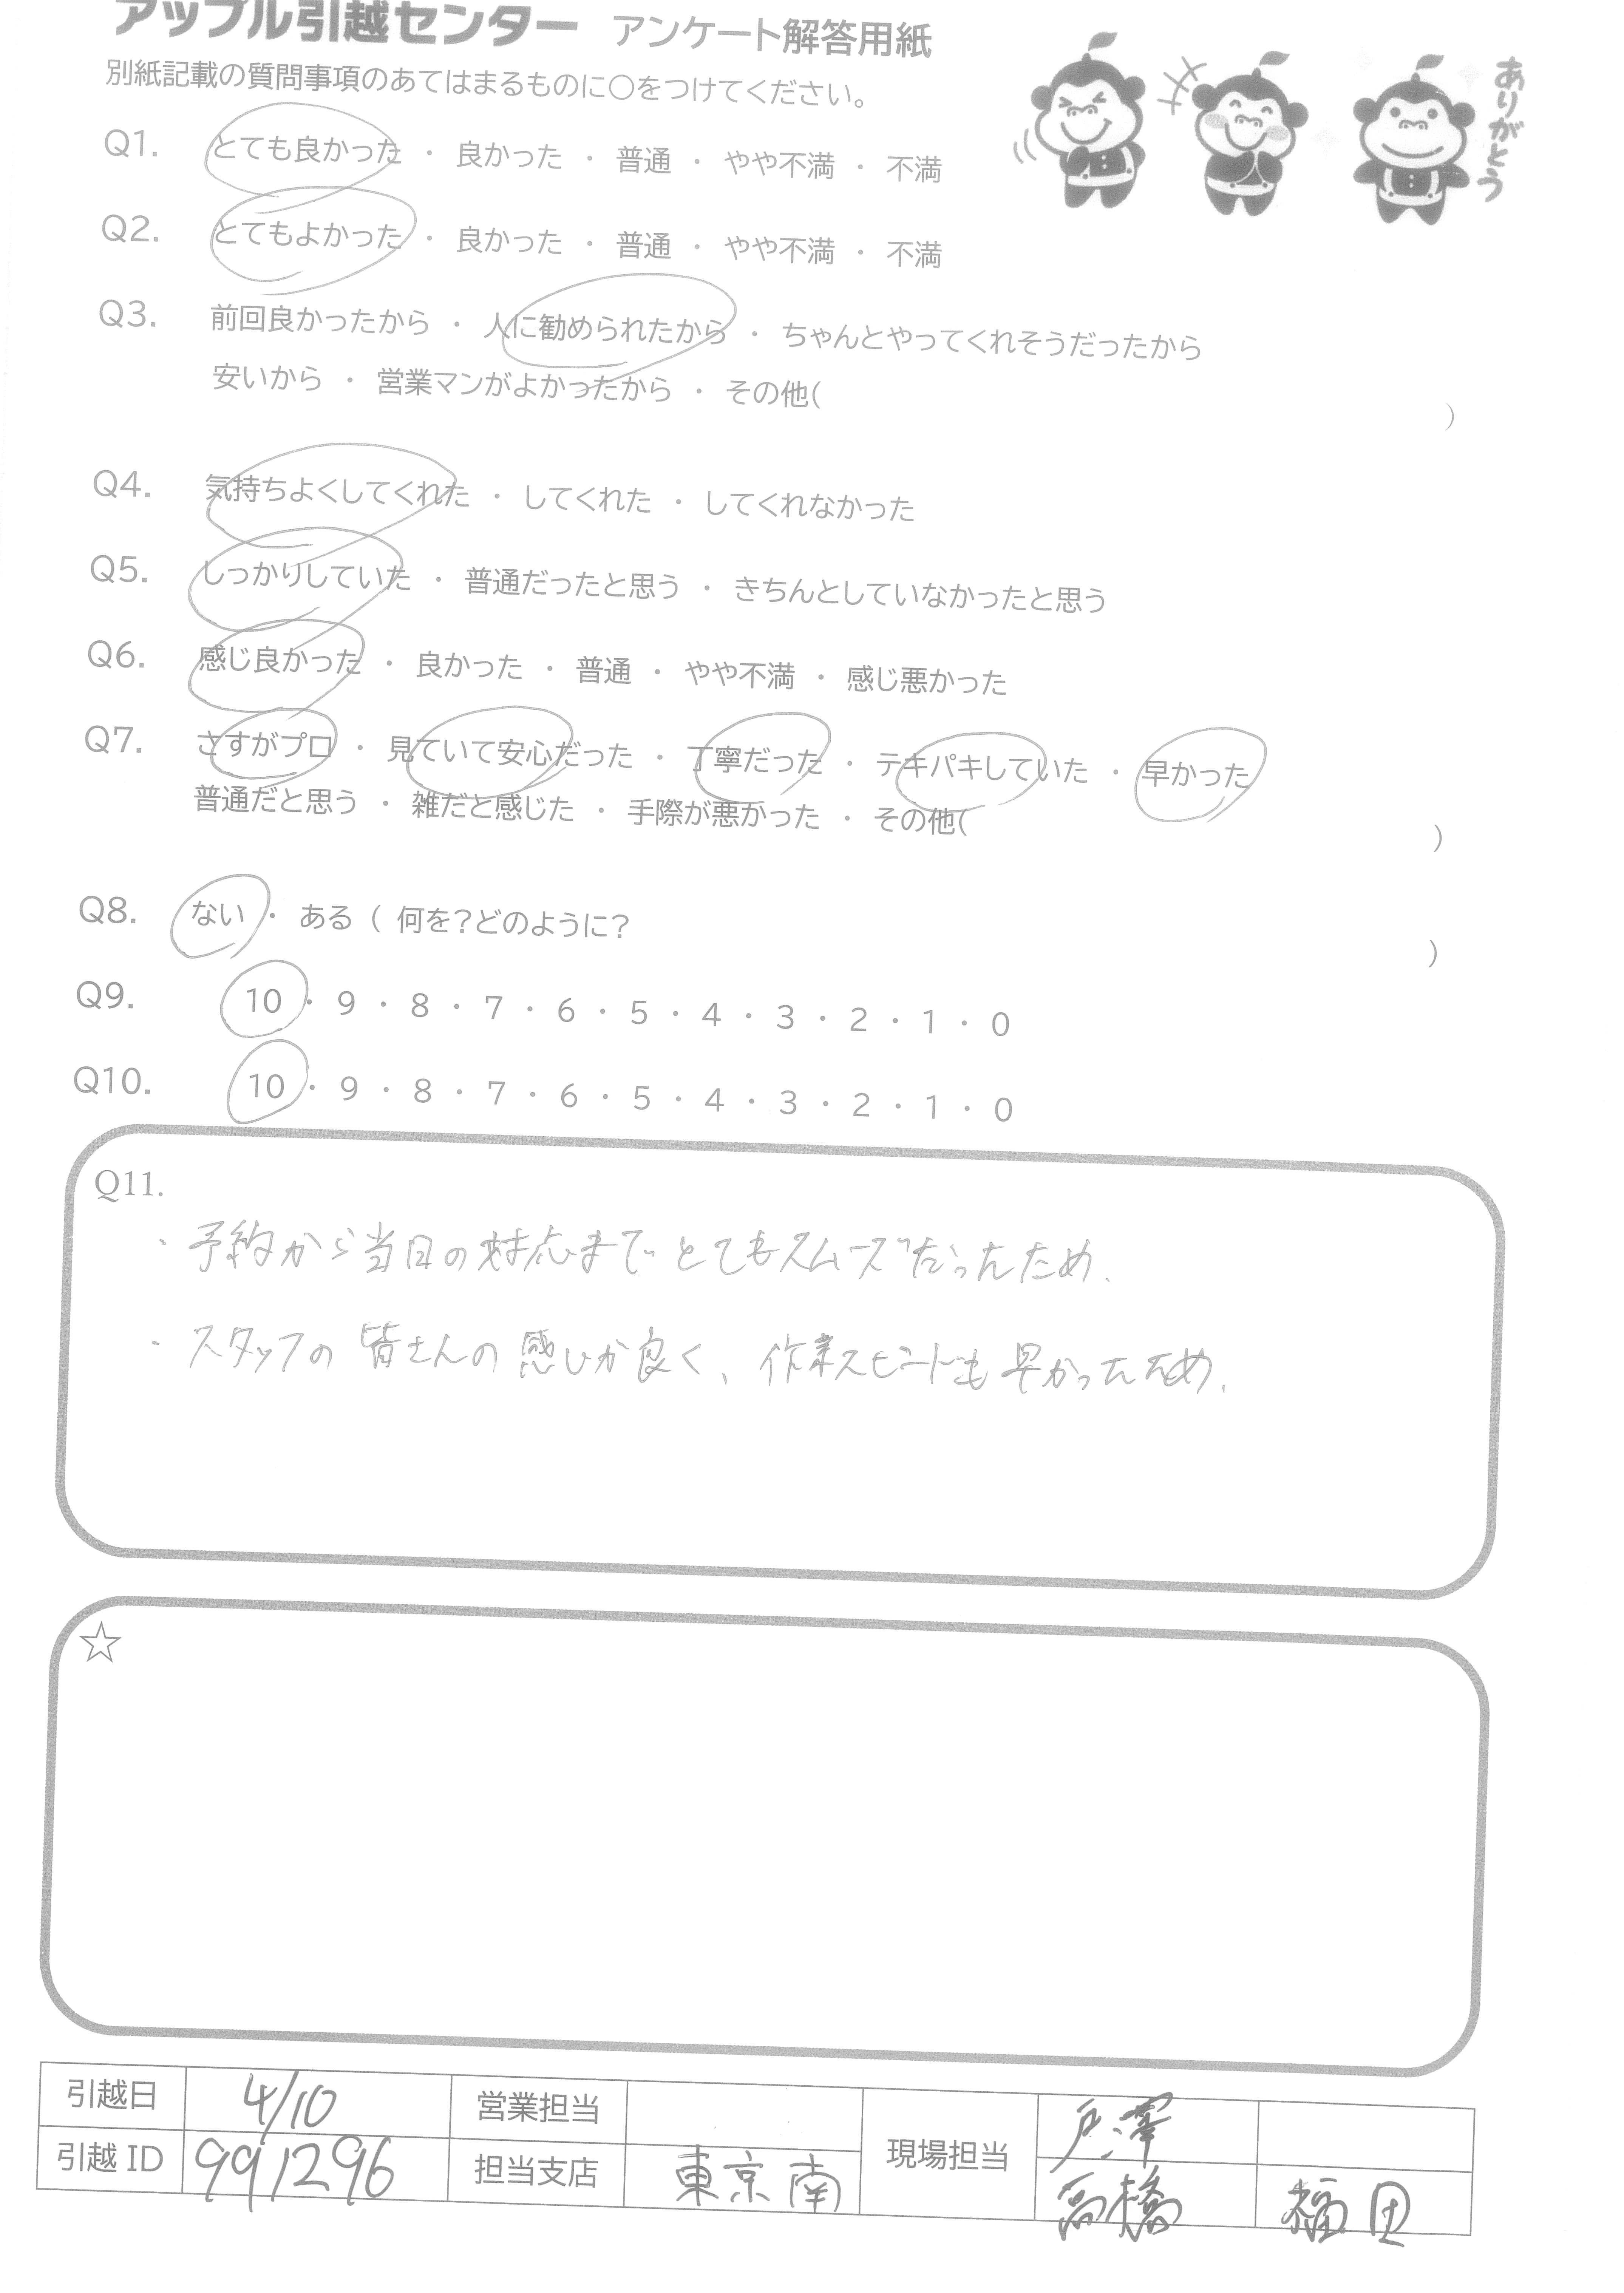 アップル引越センター アンケート解答用紙
別紙記載の質問事項のあてはまるものに○をつけてください。
ありがとう
Q1. とても良かった ・ 良かった ・ 普通 ・ やや不満 ・ 不満
Q2. とてもよかった ・ 良かった ・ 普通 ・ やや不満 ・ 不満
Q3. 前回良かったから ・ 人に勧められたから ・ ちゃんとやってくれそうだったから
安いから ・ 営業マンがよかったから ・ その他( )
Q4. 気持ちよくしてくれた ・ してくれた ・ してくれなかった
Q5. しっかりしていた ・ 普通だったと思う ・ きちんとしていなかったと思う
Q6. 感じ良かった ・ 良かった ・ 普通 ・ やや不満 ・ 感じ悪かった
Q7. さすがプロ ・ 見ていて安心だった ・ 丁寧だった ・ テキパキしていた ・ 早かった
普通だと思う ・ 雑だと感じた ・ 手際が悪かった ・ その他( )
Q8. ない ・ ある ( 何を?どのように? )
Q9. 10 ・ 9 ・ 8 ・ 7 ・ 6 ・ 5 ・ 4 ・ 3 ・ 2 ・ 1 ・ 0
Q10. 10 ・ 9 ・ 8 ・ 7 ・ 6 ・ 5 ・ 4 ・ 3 ・ 2 ・ 1 ・ 0
Q11.
・ 予約から当日の対応までとてもスムーズだったため、
・ スタッフの皆さんの感じが良く、作業スピードも早かったため、
☆
引越日 4/10 営業担当 現場担当 戸澤
引越ID 991296 担当支店 東京南 高橋 福田